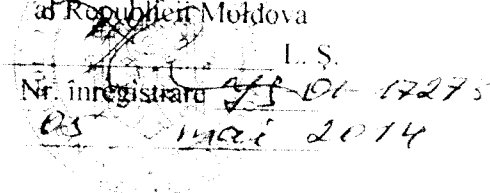 al Republicii Moldova
L. Ș.
Nr. înregistrare 01-17275
05 mai 2014